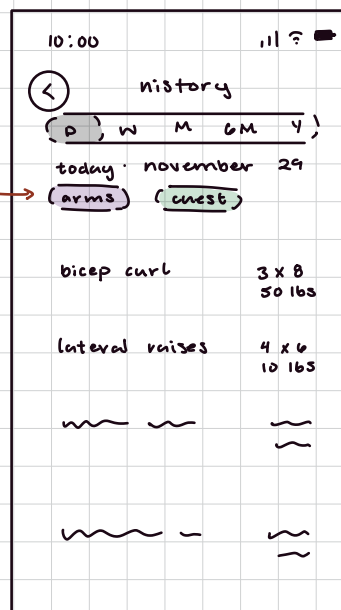 10:00
history
D W M 6M Y
today · november 29
arms chest
bicep curl 3 x 8
50 lbs
lateral raises 4 x 6
10 lbs